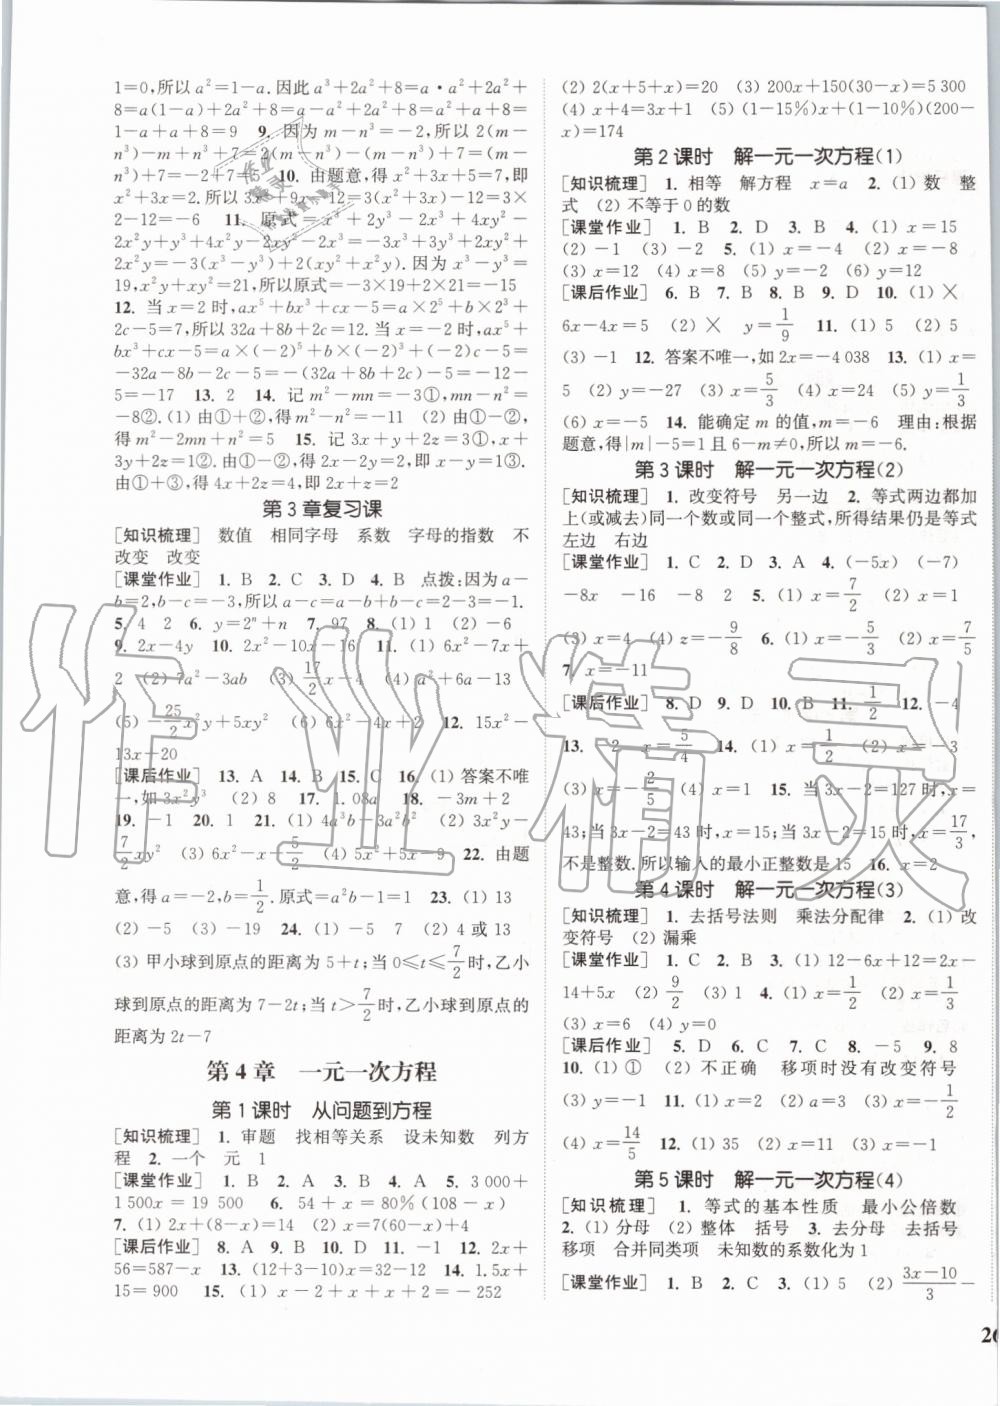 1=0,所以a²=1-a.因此a³+2a²+8=a·a²+2a²+
8=a(1-a)+2a²+8=a-a²+2a²+8=a²+a+8=
1-a+a+8=9 9. 因为m-n³=-2,所以2(m-
n³)-m+n³+7=2(m-n³)-(m-n³)+7=(m-
n³)+7=-2+7=5 10. 由题意,得x²+3x+7=5,即
x²+3x=-2.所以3x²+9x-12=3(x²+3x)-12=3×
2-12=-18 11. 原式=x³+2y³-2x³+4xy²-
2x²y+y³+4x²y-2xy²-2x³=-3x³+3y³+2xy²+
2x²y=-3(x³-y³)+2(xy²+x²y).因为x³-y³=
19,x²y+xy²=21,所以原式=-3×19+2×21=-15
12. 当x=2时,ax⁵+bx³+cx-5=a×2⁵+b×2³+
2c-5=7,所以32a+8b+2c=12.当x=-2时,ax⁵+
bx³+cx-5=a×(-2)⁵+b×(-2)³+c×(-2)-5=
-32a-8b-2c-5=-(32a+8b+2c)-5=-12-
5=-17 13. 2 14. 记m²-mn=-3①,mn-n²=
-8②.(1) 由①+②,得m²-n²=-11 (2) 由①-②,
得m²-2mn+n²=5 15. 记3x+y+2z=3①,x+
3y+2z=1②.由①-②,得2x-2y=2,即x-y=1③.
由①+③,得4x+2z=4,即2x+z=2
第3章复习课
[知识梳理] 数值 相同字母 系数 字母的指数 不
改变 改变
[课堂作业] 1. B 2. C 3. D 4. B 点拨:因为a-
b=2,b-c=-3,所以a-c=a-b+b-c=2-3=-1.
5. 4 2 6. y=2ⁿ+n 7. 97 8. (1) 1 (2) -6
9. 2x-4y 10. 2x²-10x-16 11. (1) 6x²-7x+
2 (2) 7a²-3ab (3) 17/2 x-4 (4) a²+6a-13
(5) -25/2 x²y+5xy² (6) 6x²-4x+2 12. 15x²-
13x+20
[课后作业] 13. A 14. B 15. C 16. (1) 答案不唯
一,如3x²y³ (2) 8 17. 1.08a 18. -3m+2
19. -1 20. 1 21. (1) 4a³b-3a²b² (2) 3x²y-
7/2 xy² (3) 6x²-x-5/2 (4) 5x²+5x-9 22. 由题
意,得a=-2,b=1/2.原式=a²b-1=1 23. (1) 13
(2) -5 (3) -19 24. (1) -5 7 (2) 4或13
(3) 甲小球到原点的距离为5+t;当0≤t≤7/2时,乙小
球到原点的距离为7-2t;当t>7/2时,乙小球到原点的
距离为2t-7
第4章 一元一次方程
第1课时 从问题到方程
[知识梳理] 1. 审题 找相等关系 设未知数 列方
程 2. 一个 元 1
[课堂作业] 1. B 2. A 3. B 4. A 5. 3 000+
1 500x=19 500 6. 54+x=80%(108-x)
7. (1) 2x+(8-x)=14 (2) x=7(60-x)+4
[课后作业] 8. A 9. B 10. D 11. -1 12. 2x+
56=587-x 13. (12+3-10)x=32-12 14. 1.5x+
15=900 15. (1) x-2+x+x+2=-252
(2) 2(x+5+x)=20 (3) 200x+150(30-x)=5 300
(4) x+4=3x+1 (5) (1-15%)x+(1-10%)(200-
x)=174
第2课时 解一元一次方程(1)
[知识梳理] 1. 相等 解方程 x=a 2. (1) 数 整
式 (2) 不等于0的数
[课堂作业] 1. B 2. D 3. B 4. (1) x=15
(2) -1 (3) -2 5. (1) x=-4 (2) x=-8
(3) x=12 (4) x=8 (5) y=-2 (6) y=12
[课后作业] 6. B 7. B 8. B 9. D 10. (1) ×
6x-4x=5 (2) × y=1/9 11. (1) 5 (2) 5
(3) -1 12. 答案不唯一,如2x=-4 038 13. (1) x=
5 (2) y=-27 (3) x=5/3 (4) x=24 (5) y=1/3
(6) x=-5 14. 能确定m的值,m=-6 理由:根据
题意,得|m|-5=1且6-m≠0,所以m=-6.
第3课时 解一元一次方程(2)
[知识梳理] 1. 改变符号 另一边 2. 等式两边都加
上(或减去)同一个数或同一个整式,所得结果仍是等式
左边 右边
[课堂作业] 1. C 2. D 3. A 4. (-5x) (-7)
-8x -16 -8 2 5. (1) x=7/2 (2) x=1
(3) x=4 (4) z=-9/8 6. (1) x=-5/3 (2) x=7/5
7. x=-11
[课后作业] 8. D 9. D 10. B 11. 1/2 12. -4
13. -2 x=5/4 14. (1) x=1/2 (2) x=-3
(3) x=-2/5 (4) x=1 15. 当3x-2=127时,x=
43;当3x-2=43时,x=15;当3x-2=15时,x=17/3,
不是整数.所以输入的最小正整数是15 16. x=2
第4课时 解一元一次方程(3)
[知识梳理] 1. 去括号法则 乘法分配律 2. (1) 改
变符号 (2) 漏乘
[课堂作业] 1. C 2. B 3. (1) 12-6x+12=2x-
14+5x (2) 9/2 (3) 1 4. (1) x=1/2 (2) x=1/3
(3) x=6 (4) y=0
[课后作业] 5. D 6. C 7. C 8. -5 9. 8
10. (1) ① (2) 不正确 移项时没有改变符号
(3) y=-1 11. (1) x=2 (2) a=3 (3) x=-1/2
(4) x=14/5 12. (1) 35 (2) x=11 (3) x=-1
第5课时 解一元一次方程(4)
[知识梳理] 1. 等式的基本性质 最小公倍数
2. (1) 分母 (2) 整体 括号 3. 去分母 去括号
移项 合并同类项 未知数的系数化为1
[课堂作业] 1. B 2. C 3. (1) 5 (2) (3x-10)/3-
作业精灵